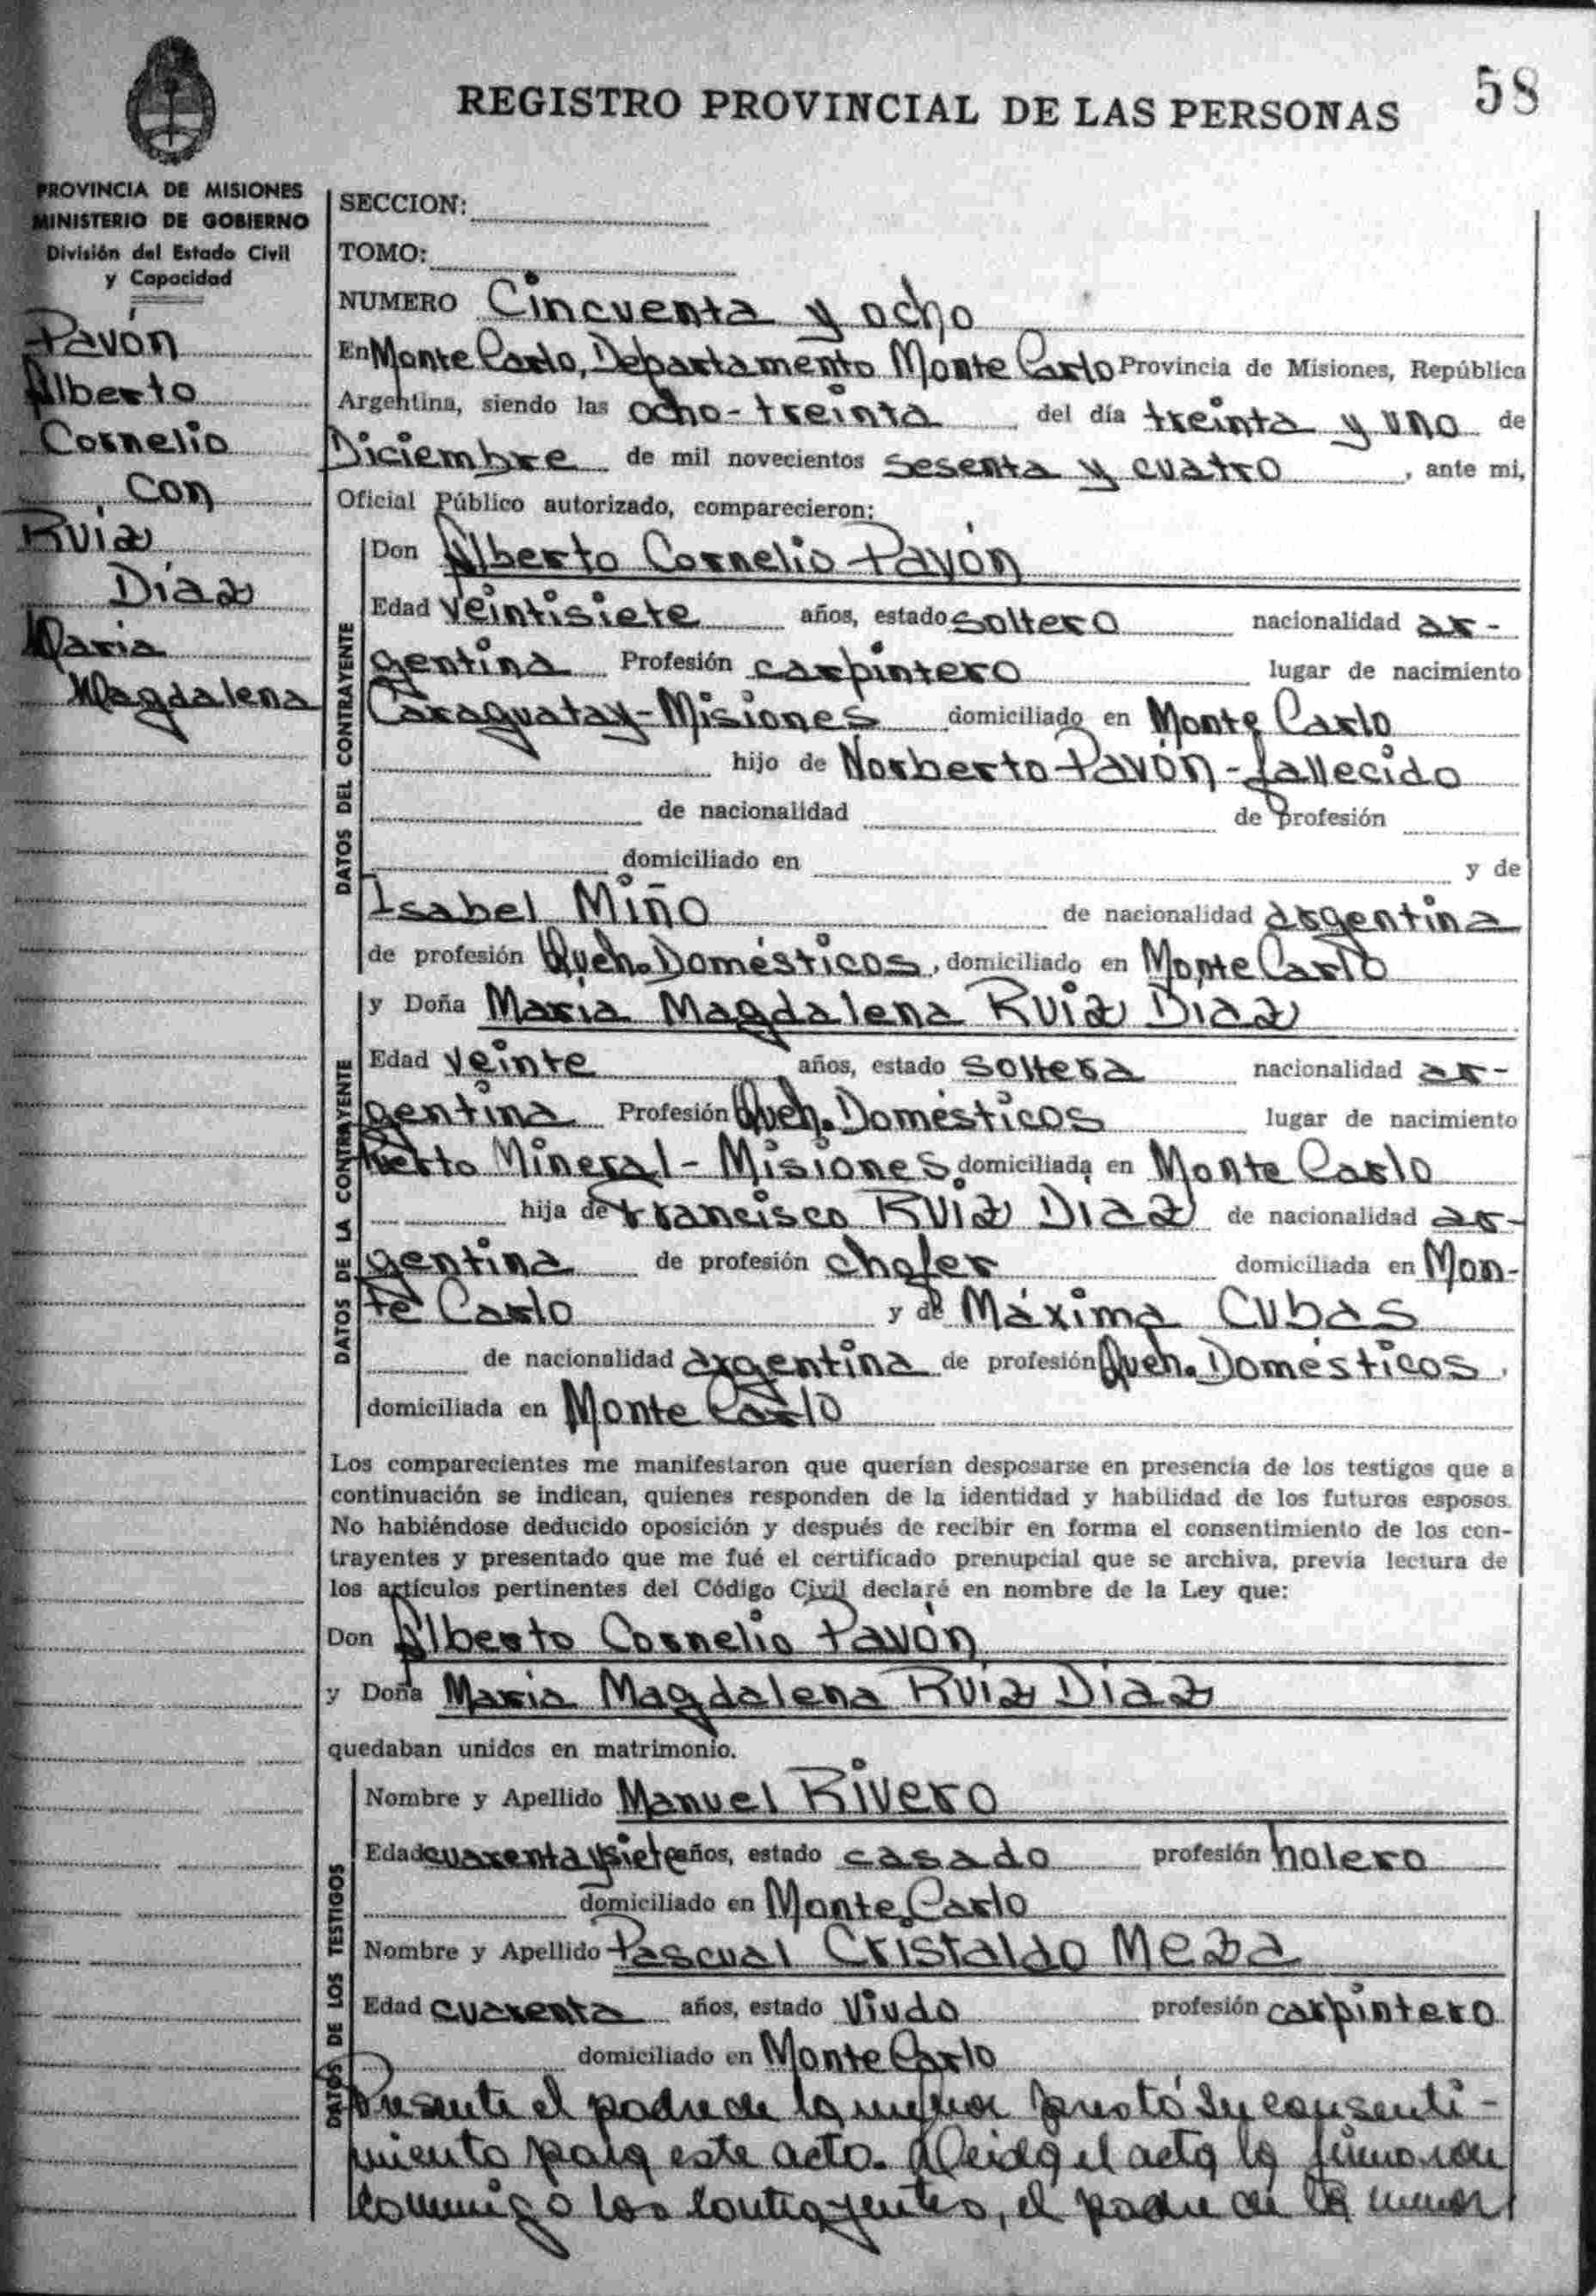 58
REGISTRO PROVINCIAL DE LAS PERSONAS
PROVINCIA DE MISIONES
MINISTERIO DE GOBIERNO
División del Estado Civil
y Capacidad
Pavón
Alberto
Cornelio
Con
Ruiz
Díaz
Maria
Magdalena
SECCION:
TOMO:
NUMERO Cincuenta y ocho
En Monte Carlo, Departamento Monte Carlo Provincia de Misiones, República
Argentina, siendo las ocho-treinta del día treinta y uno de
Diciembre de mil novecientos sesenta y cuatro, ante mi,
Oficial Público autorizado, comparecieron:
DATOS DEL CONTRAYENTE
Don Alberto Cornelio Pavón
Edad veintisiete años, estado soltero nacionalidad ar-
gentina Profesión carpintero lugar de nacimiento
Caraguatay-Misiones domiciliado en Monte Carlo
hijo de Norberto Pavón-fallecido
de nacionalidad de profesión
domiciliado en y de
Isabel Miño de nacionalidad argentina
de profesión Queh. Domésticos, domiciliado en Monte Carlo
DATOS DE LA CONTRAYENTE
y Doña Maria Magdalena Ruiz Diaz
Edad veinte años, estado soltera nacionalidad ar-
gentina Profesión Queh. Domésticos lugar de nacimiento
Puerto Mineral-Misiones domiciliada en Monte Carlo
hija de Francisco Ruiz Diaz de nacionalidad ar-
gentina de profesión chofer domiciliada en Mon-
te Carlo y de Máxima Cubas
de nacionalidad argentina de profesión Queh. Domésticos,
domiciliada en Monte Carlo
Los comparecientes me manifestaron que querían desposarse en presencia de los testigos que a
continuación se indican, quienes responden de la identidad y habilidad de los futuros esposos.
No habiéndose deducido oposición y después de recibir en forma el consentimiento de los con-
trayentes y presentado que me fué el certificado prenupcial que se archiva, previa lectura de
los artículos pertinentes del Código Civil declaré en nombre de la Ley que:
Don Alberto Cornelio Pavón
y Doña Maria Magdalena Ruiz Diaz
quedaban unidos en matrimonio.
DATOS DE LOS TESTIGOS
Nombre y Apellido Manuel Rivero
Edad cuarenta y siete años, estado casado profesión holero
domiciliado en Monte Carlo
Nombre y Apellido Pascual Cristaldo Meza
Edad cuarenta años, estado viudo profesión carpintero
domiciliado en Monte Carlo
Presente el padre de la menor prestó su consenti-
miento para este acto. Leida el acta la firmaron
conmigo los contrayentes, el padre de la menor